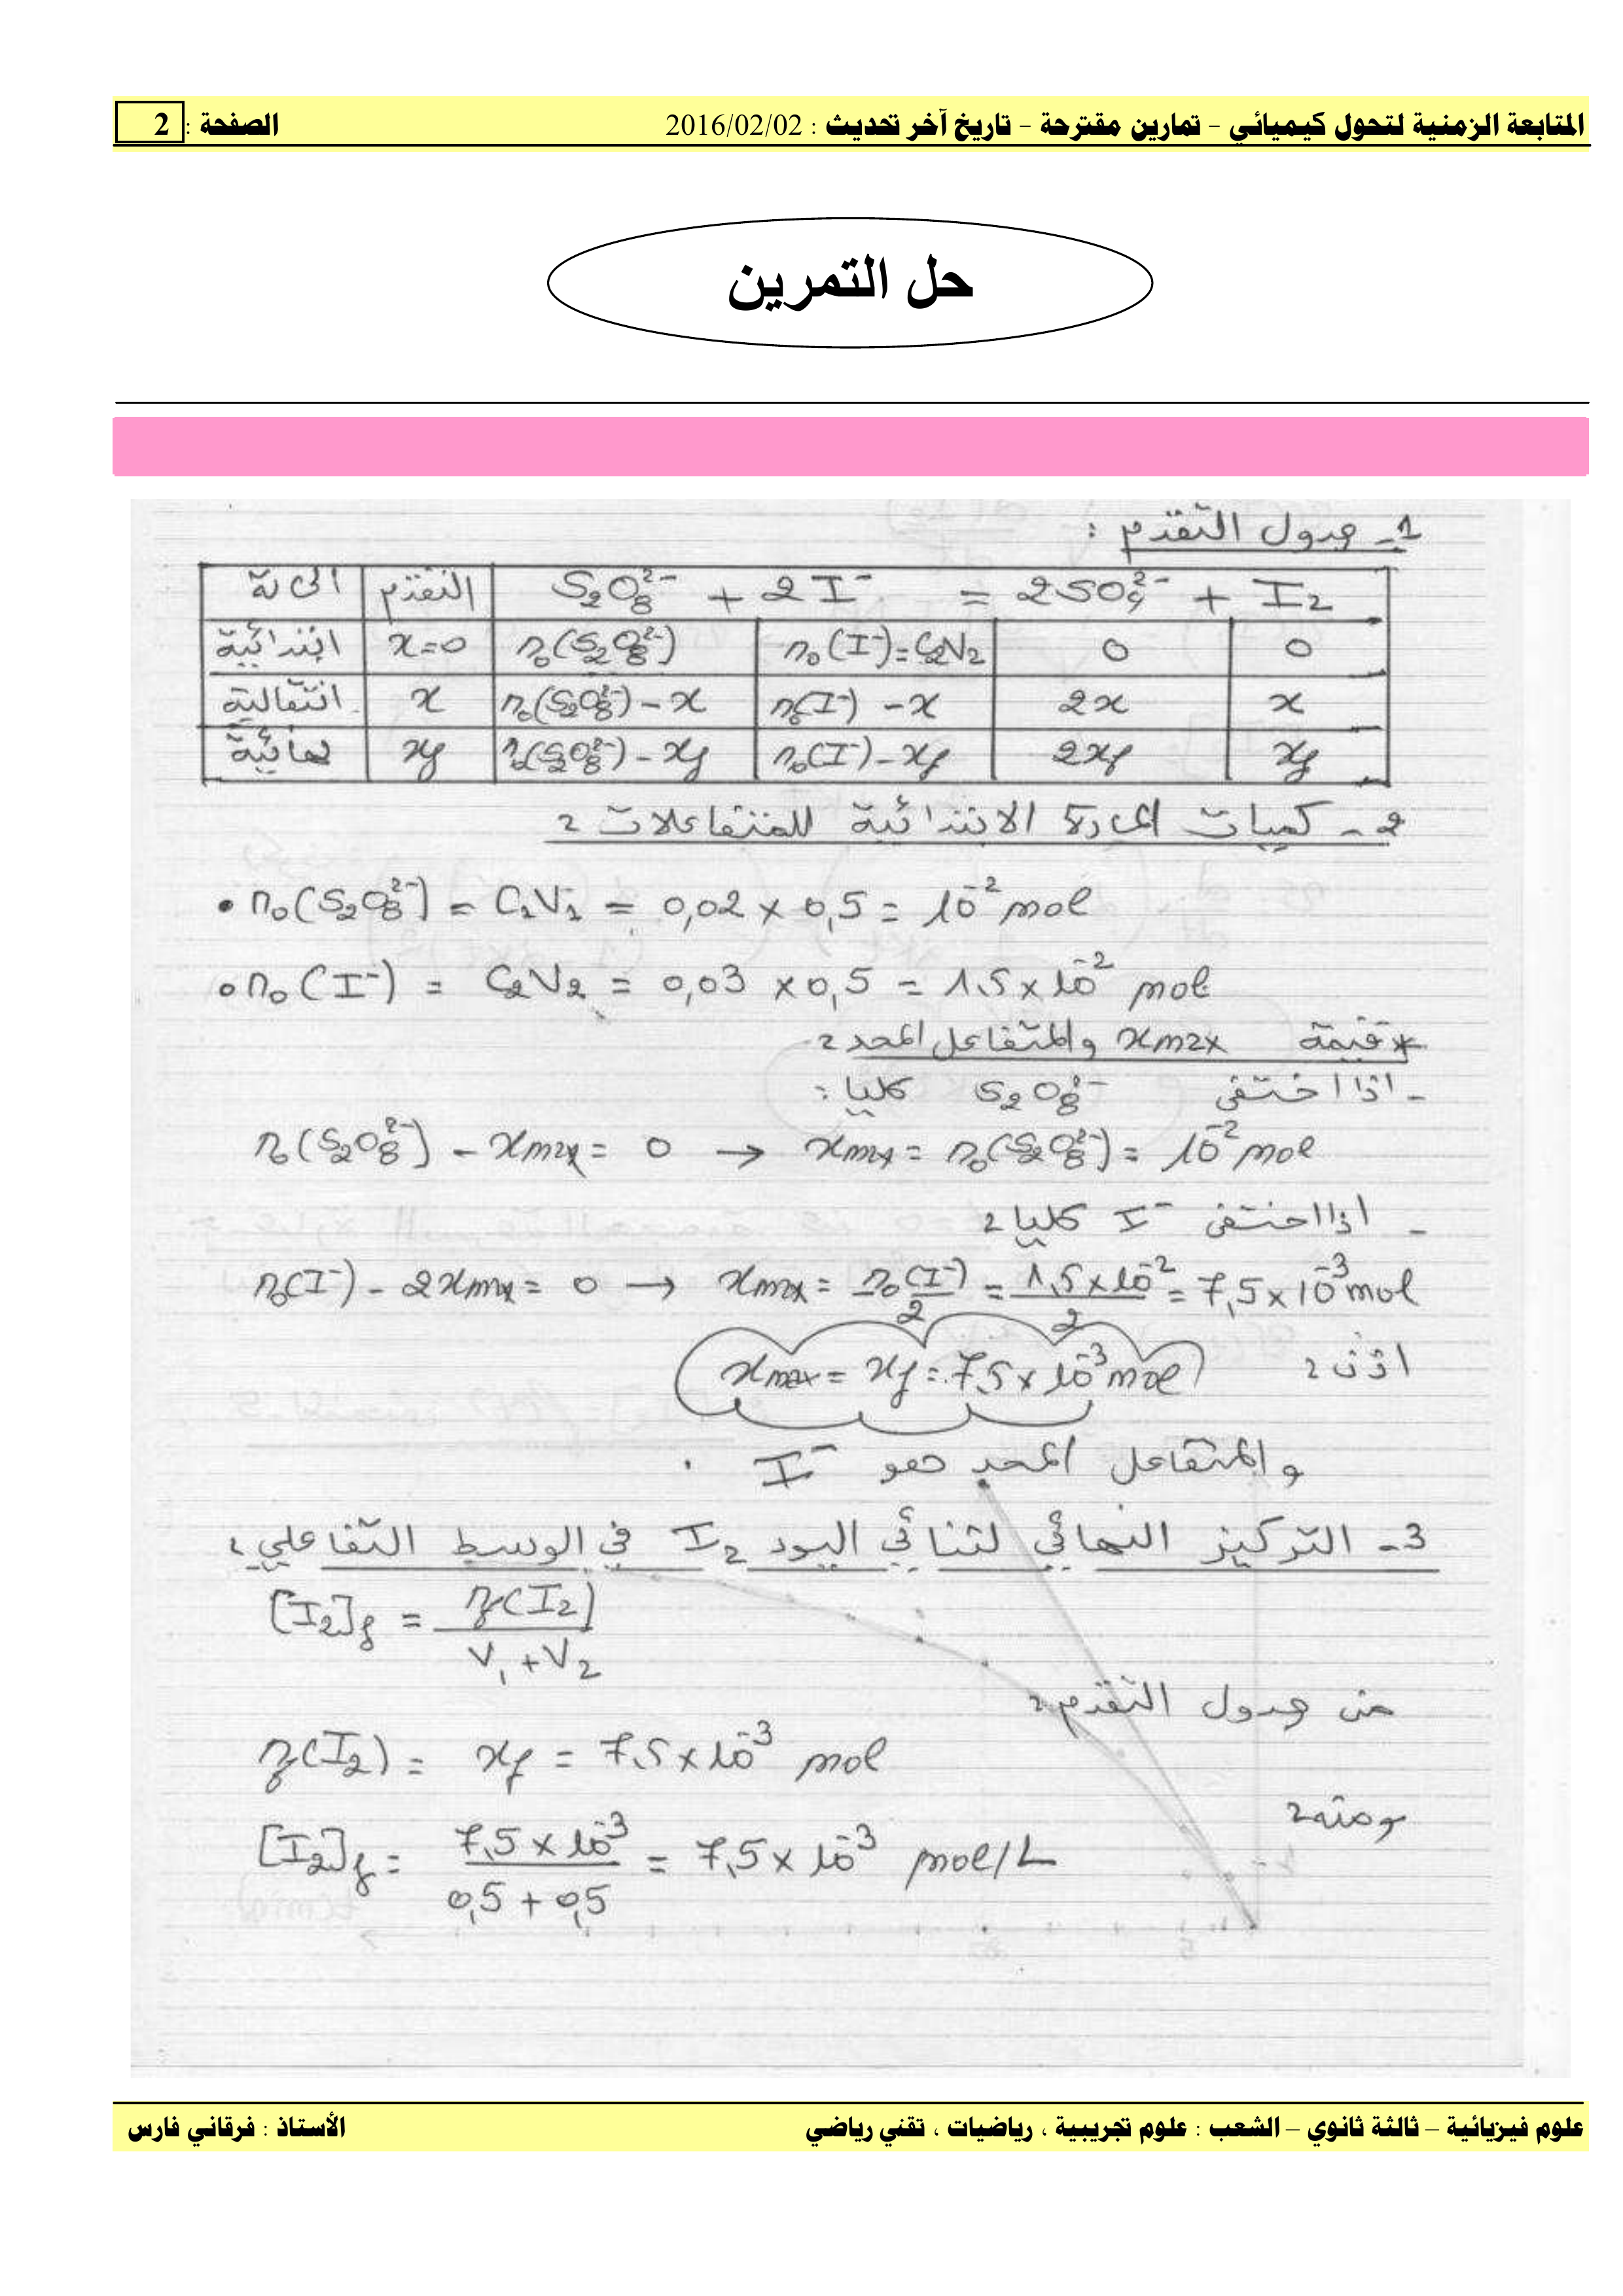 المتابعة الزمنية لتحول كيميائي - تمارين مقترحة - تاريخ آخر تحديث : 2016/02/02 الصفحة : 2
حل التمرين
1- جدول التقدم :
الحالة | التقدم | S₂O₈²⁻ + 2I⁻ = 2SO₄²⁻ + I₂
ابتدائية | x=0 | n₀(S₂O₈²⁻) | n₀(I⁻)=C₂V₂ | 0 | 0
انتقالية | x | n₀(S₂O₈²⁻) - x | n₀(I⁻) - x | 2x | x
نهائية | xf | n₀(S₂O₈²⁻) - xf | n₀(I⁻) - xf | 2xf | xf
2- كميات المادة الابتدائية للمتفاعلات :
• n₀(S₂O₈²⁻) = C₁V₁ = 0,02 × 0,5 = 10⁻² mol
• n₀(I⁻) = C₂V₂ = 0,03 × 0,5 = 1,5 × 10⁻² mol
* قيمة xmax والمتفاعل المحد :
- اذا اختفى S₂O₈²⁻ كليا :
n₀(S₂O₈²⁻) - xmax = 0 → xmax = n₀(S₂O₈²⁻) = 10⁻² mol
- اذا اختفى I⁻ كليا :
n₀(I⁻) - 2xmax = 0 → xmax = n₀(I⁻)/2 = 1,5 × 10⁻²/2 = 7,5 × 10⁻³ mol
اذن : xmax = xf = 7,5 × 10⁻³ mol
والمتفاعل المحد هو I⁻ .
3- التركيز النهائي لثنائي اليود I₂ في الوسط التفاعلي :
[I₂]f = nf(I₂)/V₁+V₂
من جدول التقدم :
nf(I₂) = xf = 7,5 × 10⁻³ mol
ومنه :
[I₂]f = 7,5 × 10⁻³/0,5 + 0,5 = 7,5 × 10⁻³ mol/L
علوم فيزيائية – ثالثة ثانوي – الشعب : علوم تجريبية ، رياضيات ، تقني رياضي الأستاذ : فرقاني فارس